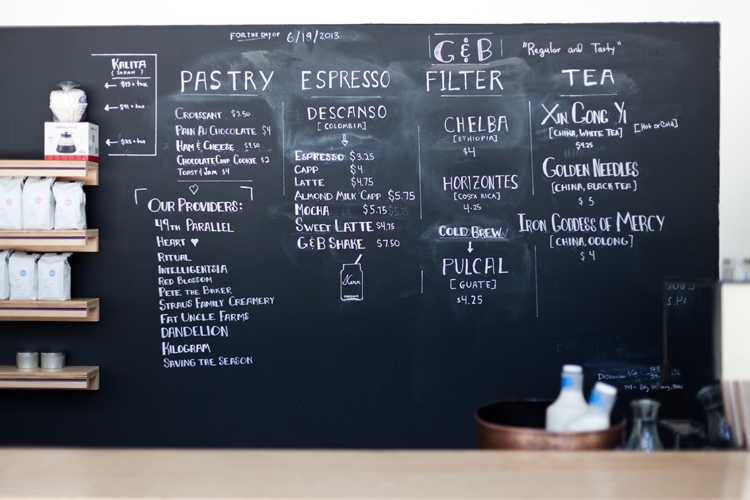 FOR THE DAY OF 6/19/2013
KALITA
(JAPAN)
PASTRY
CROISSANT $3.50
PAIN AU CHOCOLATE $4
HAM & CHEESE $4.50
CHOCOLATE CHIP COOKIE $2
TOAST & JAM $4
OUR PROVIDERS:
49TH PARALLEL
HEART
RITUAL
INTELLIGENTSIA
RED BLOSSOM
PETE THE BAKER
STRAUS FAMILY CREAMERY
FAT UNCLE FARMS
DANDELION
KILOGRAM
SAVING THE SEASON
ESPRESSO
DESCANSO
[COLOMBIA]
ESPRESSO $3.25
CAPP $4
LATTE $4.75
ALMOND MILK CAPP $5.75
MOCHA $5.75
SWEET LATTE $4.75
G&B SHAKE $7.50
Kerr
MASON
G&B
"Regular and Tasty"
FILTER
CHELBA
[ETHIOPIA]
$4
HORIZONTES
[COSTA RICA]
4.25
COLD BREW
PULCAL
[GUATE]
$4.25
TEA
XIN GONG YI
[CHINA, WHITE TEA] [Hot or Cold]
$4.25
GOLDEN NEEDLES
[CHINA, BLACK TEA]
$5
IRON GODDESS OF MERCY
[CHINA, OOLONG]
$4